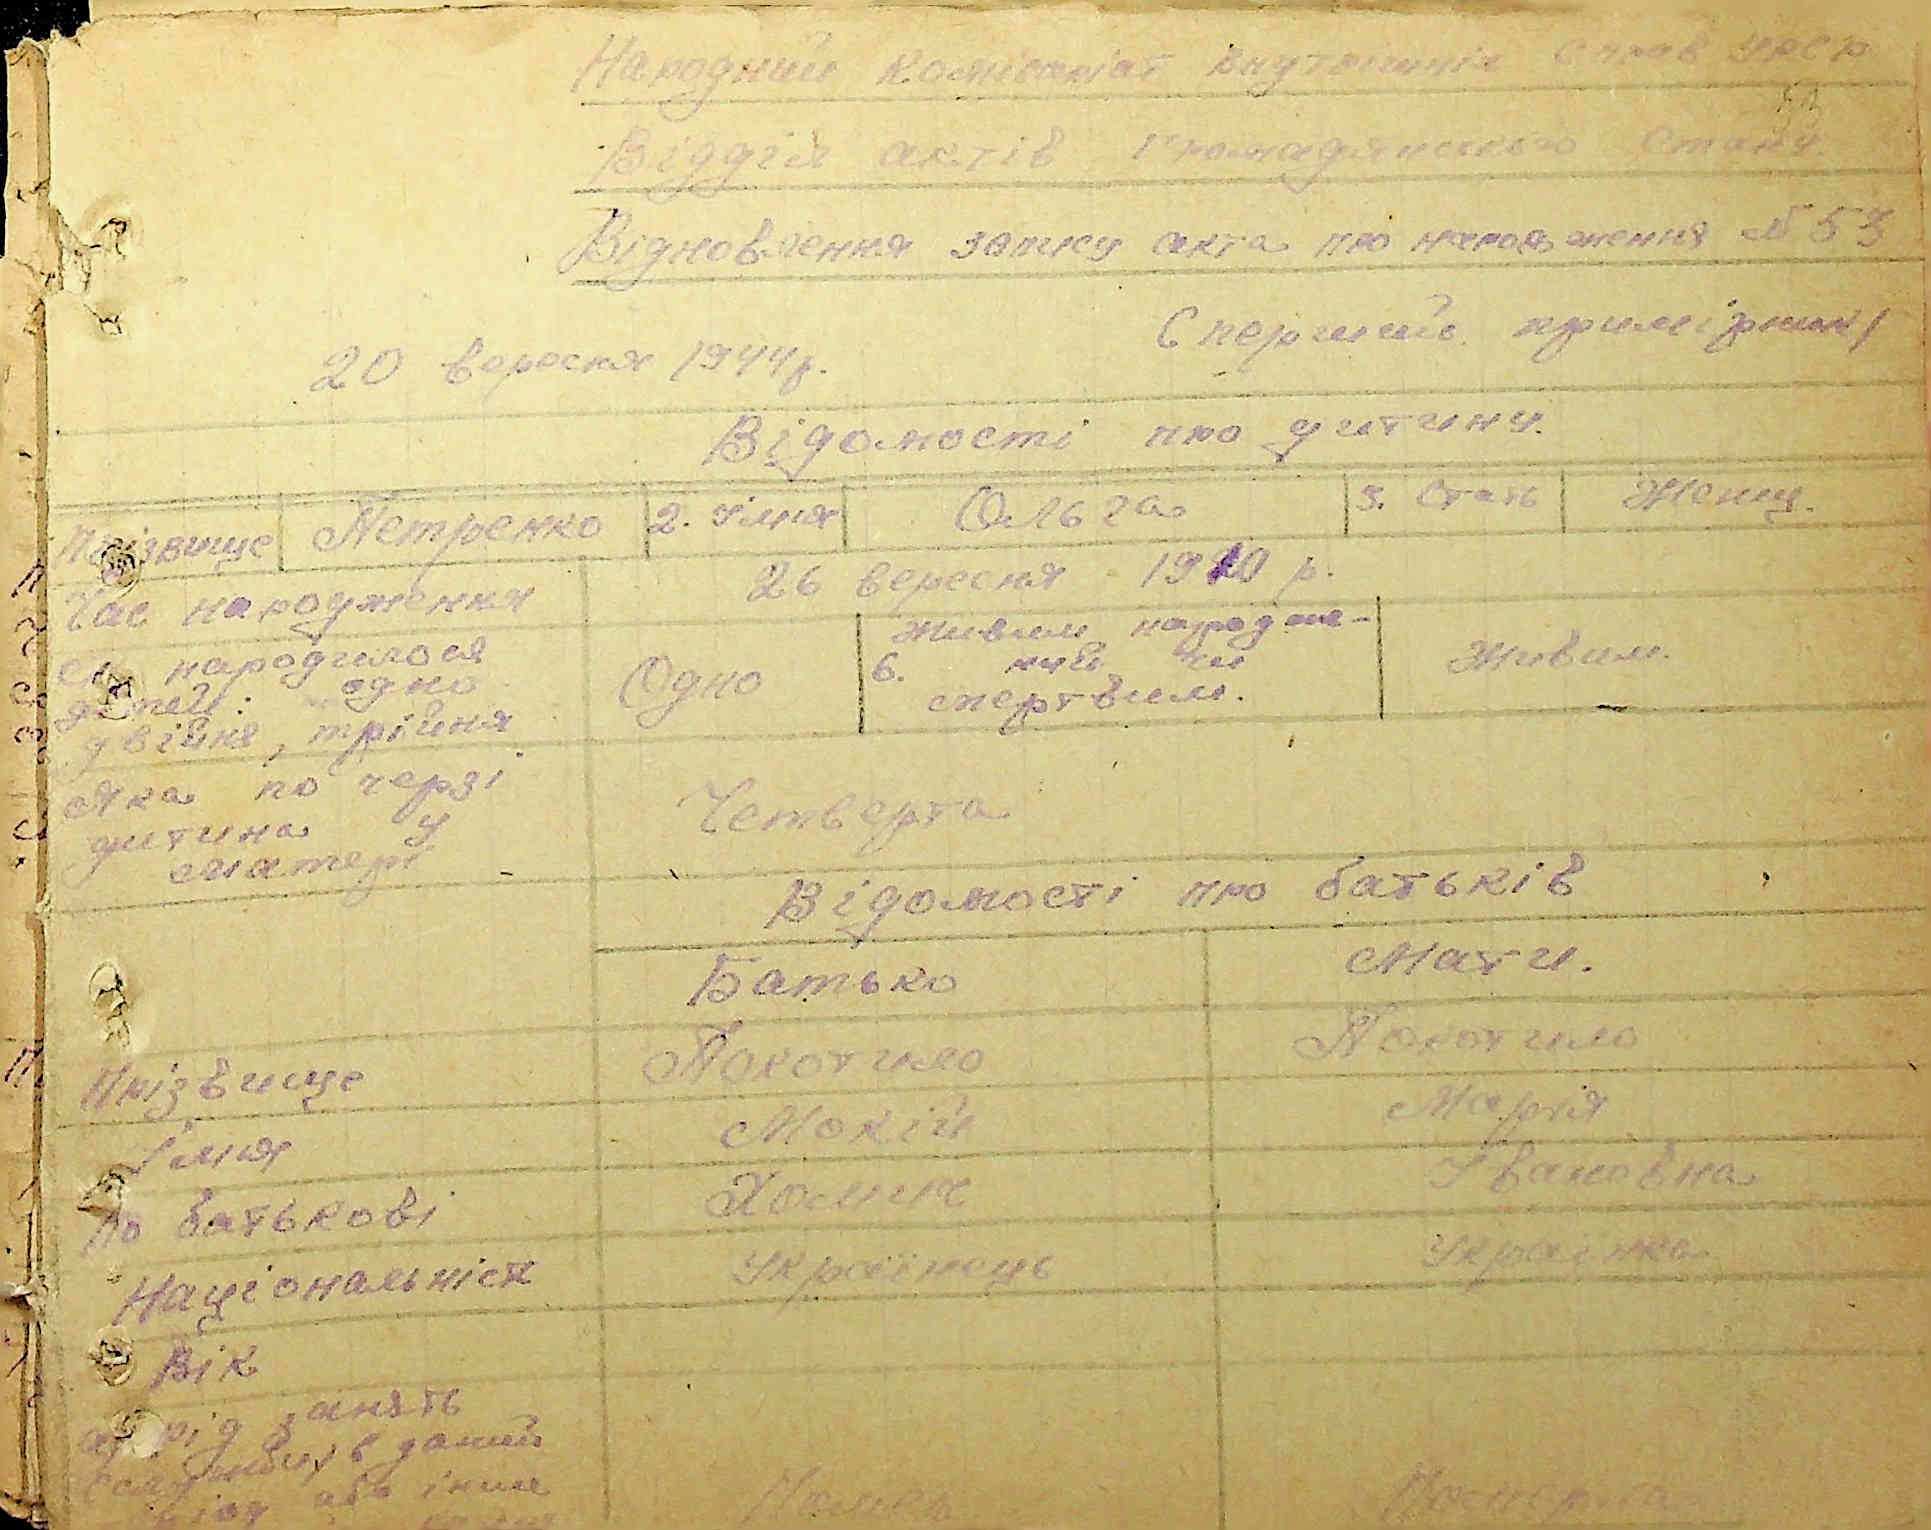 Народний комісаріат внутрішніх справ УРСР
Відділ актів громадянського стану
Відновлення запису акта про народження № 53
Є перший примірник
20 вересня 1944 р.
Відомості про дитину.
Прізвище Петренко 2. Імня Ольга 3. Стать Женщ.
Час народження 26 вересня 1910 р.
народилося дітей: одно двійня, трійня Одно 6. живим народже- ний чи мертвим. Живим.
Яка по черзі дитина у матері Четверта
Відомості про батьків
Батько Мати.
Прізвище Покотило Покотило
Імня Мокій Марія
По батькові Хомич Івановна
Національність Українець Українка
Вік
рід занять
в даний
або інше
Помер Померла